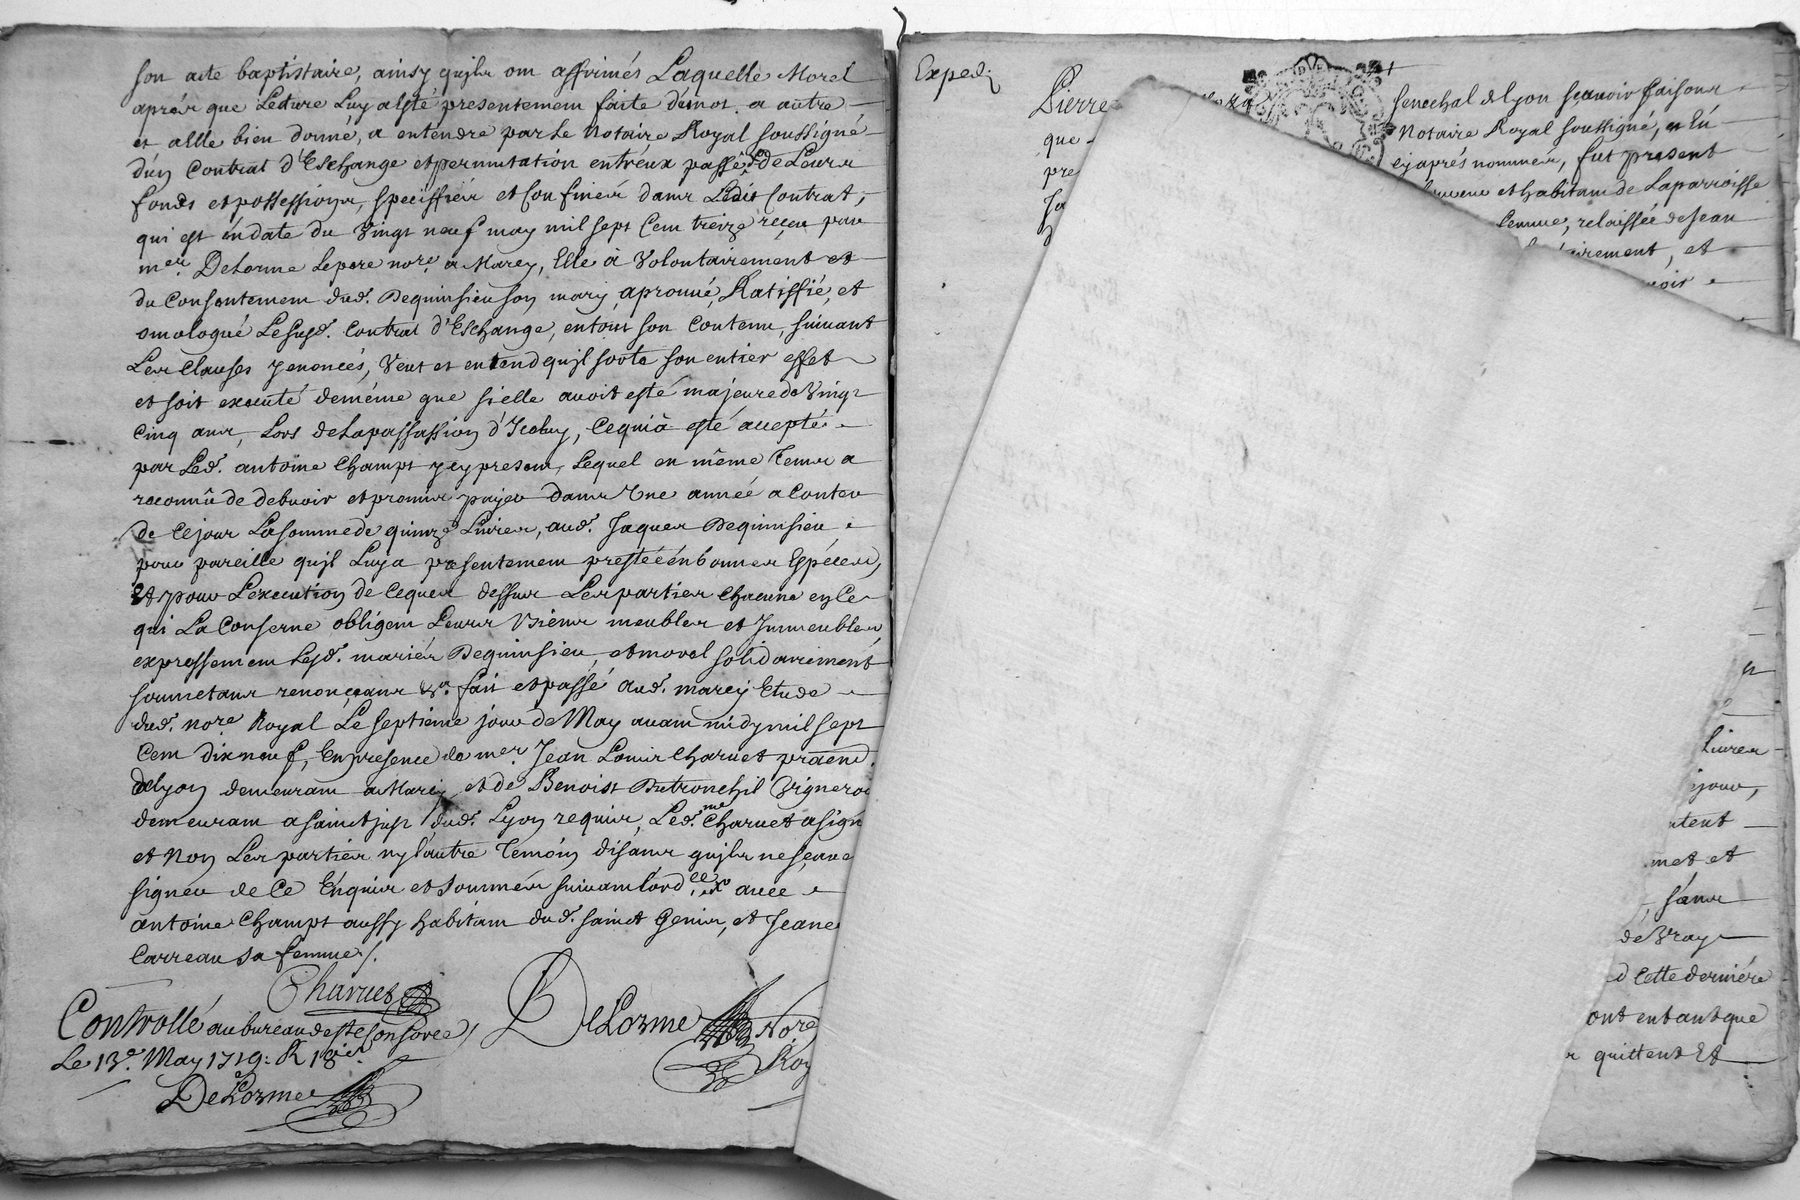 son acte baptistaire, ainsy qu'ils ont affirmés Laquelle Morel
aprés que Lecture Luy a esté presentement faite de mot a autre
et a Elle bien donné, a entendre par Le Notaire Royal soussigné
d'un Contrat d'Eschange et permutation entr'eux passé de Leurs
fonds et possessions, speciffiés et Confinés dans Ledit Contrat,
qui est en date du Vingt neuf may mil sept Cent treize reçeu par
mer. DeLorme Le pere nore. a Marcy, Elle à Volontairement et
du Consentement dud. Dequinsieu son mary, aprouué, Ratiffié, et
omologué Le susd. Contrat d'Eschange, en tout son Contenu, suiuant
Les Clauses y enoncés, Veut et entend qu'jl sorte son entier effet
et soit executé de méme que si elle auoit esté majeure de Vingt
Cinq ans, Lors de La passassion d'Jceluy, Ce qui à esté accepté
par Led. antoine Champt y cy present, Lequel en même Tems a
reconnû de debuoir et promis payer dans Une année a Conter
de Ce jour La somme de quinze Liures, aud. Jaques Dequinsieu
pour pareille qu'jl Luy a presentement presté en bonnes Espéces,
Et pour L'execution de Ce que dessus Les parties Chacune en Ce
qui La Conserne obligent Leurs Biens meubles et Jmmeubles,
expressement Lesd. mariés Dequinsieu, et morel solidairement
soumetans renonçans &a. fait et passé aud. marcy Etude
dud. nore. Royal Le septiéme jour de May auant midy mil sept
Cent dix neuf, En presence de mer. Jean Louis Charuet praticn.
de Lyon demeurant a Marcy, et de Benoist Vignero
demeurant a sainct just dud. Lyon requis, Led. me Charuet a sign
et Non Les parties ny L'autre Temoin disans qu'jls ne sçaue
signer de Ce Enquis et sommés suiuant L'ord.ce auec
antoine Champt aussy habitant dud. sainct Genis, et Jeane
Carreau sa femme /.
Charuet
DeLorme Nore
Roy
Controllé au bureau de
Le 13e. May 1719. R
DeLorme
Exped.
Pierre
que
pre
Ja
senechal de Lyon sçauoir faisons
Notaire Royal soussigné, et En
cy aprés nommés, fut present
et habitant de La parroisse
femme, relaissée de Jean
airement, et
Liures
jour,
ntent
met et
, sans
de Vray
d Cette derniére
ont en tant que
quittent Et